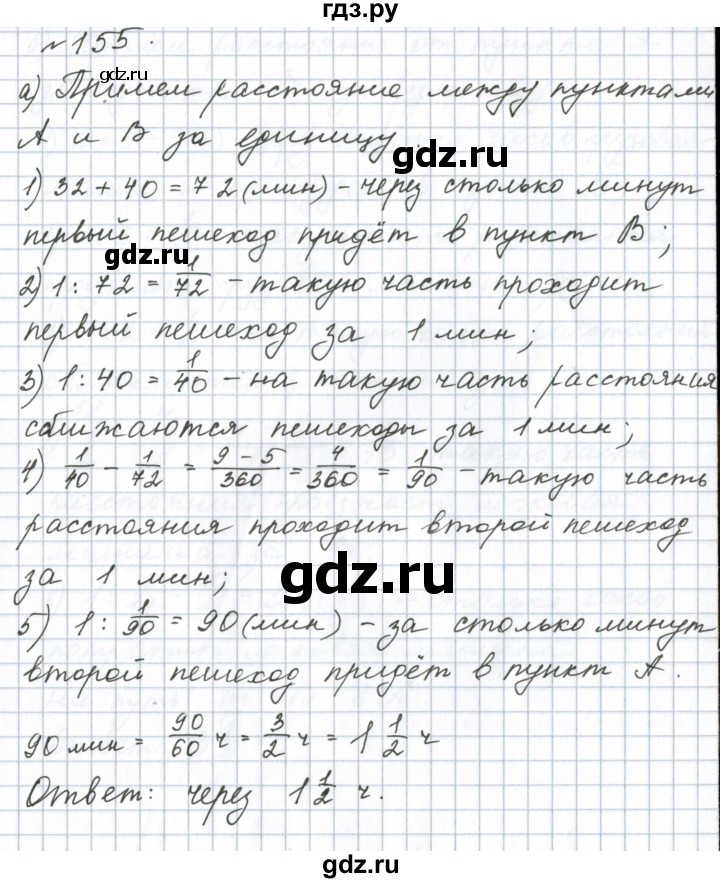 гдз.ру
№155.
а) Примем расстояние между пунктами
А и В за единицу.
gdz.ru
1) 32 + 40 = 72 (мин) - через столько минут
первый пешеход придёт в пункт В;
gdz.ru
2) 1 : 72 = 1/72 - такую часть проходит
первый пешеход за 1 мин;
3) 1 : 40 = 1/40 - на такую часть расстояния
сближаются пешеходы за 1 мин;
4) 1/40 - 1/72 = (9 - 5)/360 = 4/360 = 1/90 - такую часть
расстояния проходит второй пешеход
gdz.ru
за 1 мин;
5) 1 : 1/90 = 90 (мин) - за столько минут
второй пешеход придёт в пункт А.
90 мин = 90/60 ч = 3/2 ч = 1 1/2 ч
Ответ: через 1 1/2 ч.
gdz.ru